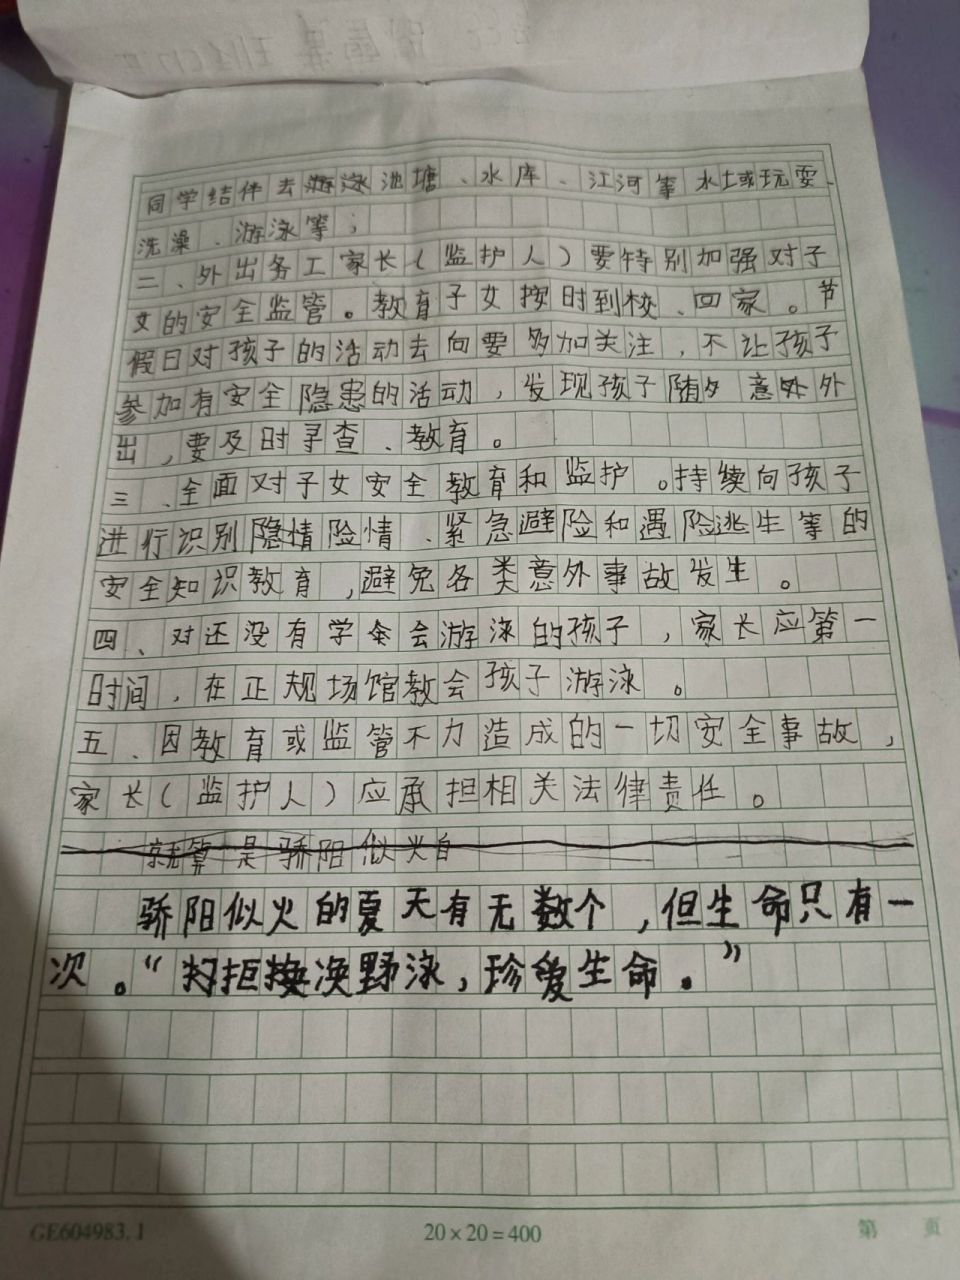 同学结伴去游泳池塘、水库、江河等水域玩耍、
洗澡、游泳等;
二、外出务工家长(监护人)要特别加强对子
女的安全监管。教育子女按时到校、回家。节
假日对孩子的活动去向要多加关注,不让孩子
参加有安全隐患的活动,发现孩子随意外
出,要及时寻查、教育。
三、全面对子女安全教育和监护。持续向孩子
进行识别隐情险情、紧急避险和遇险逃生等的
安全知识教育,避免各类意外事故发生。
四、对还没有学会游泳的孩子,家长应第一
时间,在正规场馆教会孩子游泳。
五、因教育或监管不力造成的一切安全事故,
家长(监护人)应承担相关法律责任。
就算是骄阳似火自
骄阳似火的夏天有无数个,但生命只有一
次。“拒野泳,珍爱生命。”
GE604983.1 20×20=400 第 页